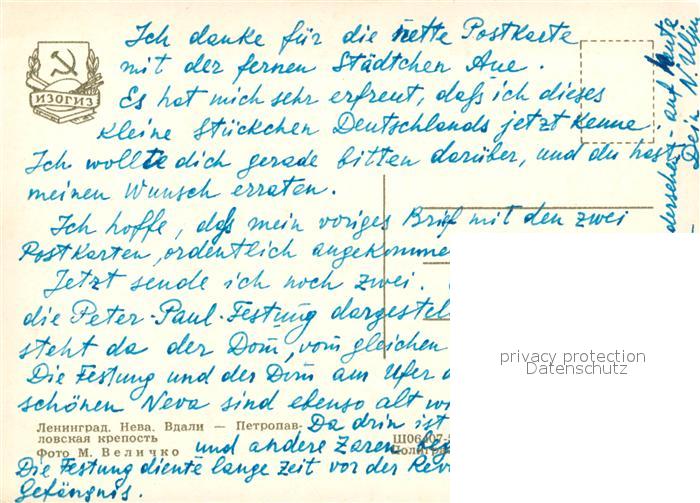 Ich danke für die nette Postkarte
mit der fernen Städtchen Aue.
Es hat mich sehr erfreut, daß ich dieses
kleine Stückchen Deutschlands jetzt kenne.
Ich wollte dich gerade bitten darüber, und du hast
meinen Wunsch erraten.
Ich hoffe, daß mein voriges Brief mit den zwei
Postkarten, ordentlich angekomme
Jetzt sende ich noch zwei.
die Peter-Paul-Festung dargestel
steht da der Dom, vom gleichen
Die Festung und der Dom am Ufer
schönen Neva sind ebenso alt
Da drin ist
und andere Zaren
Die Festung diente lange Zeit vor der Rev
Gefängnis.
ИЗОГИЗ
Ленинград. Нева. Вдали — Петропав-
ловская крепость
Фото М. Величко
privacy protection
Datenschutz
dersehen - auf
Dein